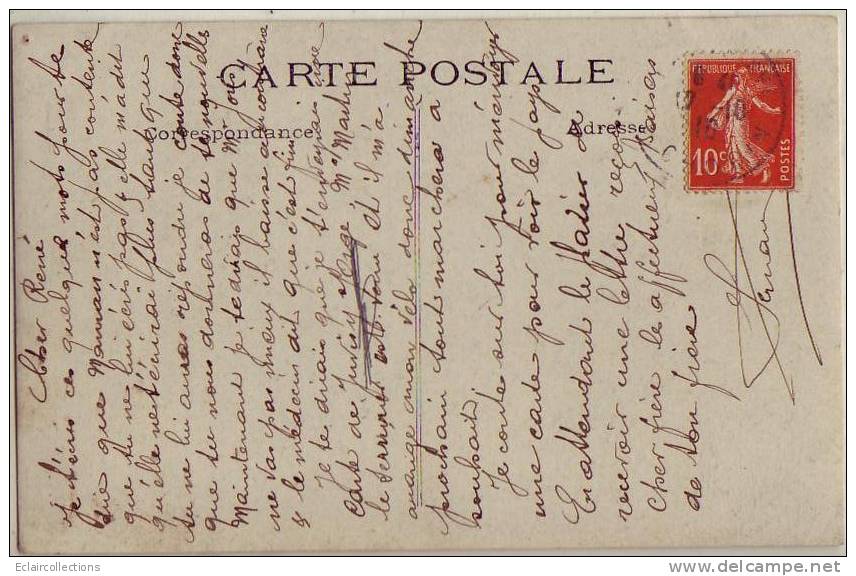 CARTE POSTALE
Correspondance
Adresse
RÉPUBLIQUE FRANÇAISE
10c
POSTES
Cher René
Je t'écris ces quelques mots pour te
que Maman n'est pas contente
que tu ne lui écris pas, elle m'a dit
qu'elle ne t'écrirai plus tant que
tu ne lui auras répondu je compte donc
que tu nous donneras de tes nouvelles
Maintenant je te dirais que Mr
ne vas pas mieux il baisse au contraire
& le médecin dit que c'est fini
Je te dirais que je t'envoyais une
carte de Juvisy Mr Martin
le serrurier est venu et il m'a
arrangé mon vélo donc dimanche
prochain tout marchera a
souhait
Je compte sur toi pour m'envoyer
une carte pour voir le pays
En attendant le plaisir de
recevoir une lettre reçois
cher frère les affectueux baisers
de ton frère
Eclaircollections
delcampe.net